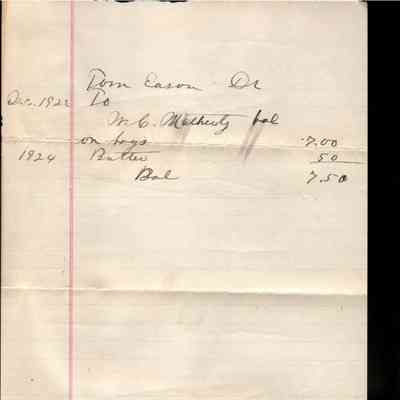 Tom Eason Dr
Dec. 1922 To
W. C. bal
on hogs 7.00
1924 Butter 50
Bal 7.50